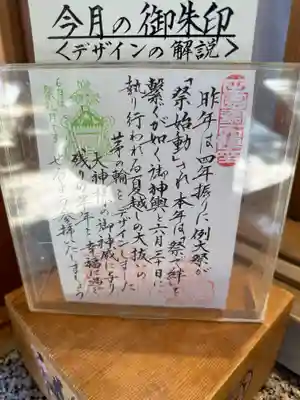 今月の御朱印
<デザインの解説>
昨年は四年振りに例大祭が
「祭始動」され本年は「祭で絆を
繋ぐが如く御神輿と六月三十日に
執り行われる夏越しの大祓いの
茅の輪をデザインしました
大神様の御神威により
残りの半年を幸福に満ち